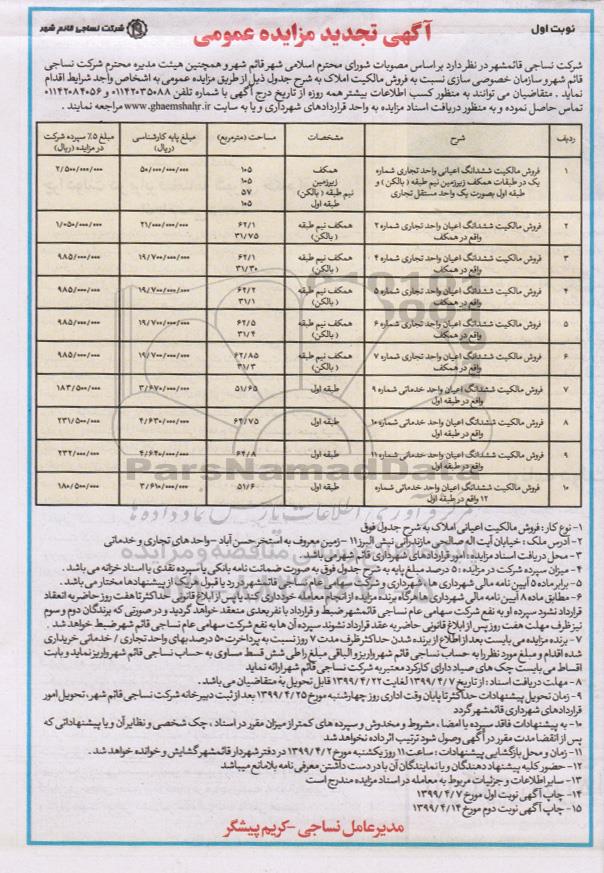 نوبت اول
آگهی تجدید مزایده عمومی
شرکت نساجی قائم شهر
شرکت نساجی قائمشهر در نظر دارد بر اساس مصوبات شورای محترم اسلامی شهر قائم شهر و همچنین هیئت مدیره محترم شرکت نساجی
قائم شهر و سازمان خصوصی سازی نسبت به فروش مالکیت املاک به شرح جدول ذیل از طریق مزایده عمومی به اشخاص واجد شرایط اقدام
نماید . متقاضیان می توانند به منظور کسب اطلاعات بیشتر همه روزه از تاریخ درج آگهی با شماره تلفن ۰۱۱۴۲۰۳۵۰۸۸ و ۰۱۱۴۲۰۸۴۰۵۶
تماس حاصل نموده و به منظور دریافت اسناد مزایده به واحد قراردادهای شهرداری و یا به سایت www.ghaemshahr.ir مراجعه نمایند .
ردیف شرح مشخصات مساحت (مترمربع) مبلغ پایه کارشناسی (ریال) مبلغ ۵٪ سپرده شرکت در مزایده (ریال)
۱ فروش مالکیت ششدانگ اعیانی واحد تجاری شماره همکف ۱۰۵ ۵۰/۰۰۰/۰۰۰/۰۰۰ ۲/۵۰۰/۰۰۰/۰۰۰
یک در طبقات همکف زیرزمین نیم طبقه ( بالکن ) و زیرزمین ۱۰۵
طبقه اول بصورت یک واحد مستقل تجاری نیم طبقه ( بالکن) ۵۷
طبقه اول ۱۰۵
۲ فروش مالکیت ششدانگ اعیان واحد تجاری شماره ۲ همکف نیم طبقه ۶۲/۱ ۲۱/۰۰۰/۰۰۰/۰۰۰ ۱/۰۵۰/۰۰۰/۰۰۰
واقع در همکف ( بالکن) ۳۱/۷۵
۳ فروش مالکیت ششدانگ اعیان واحد تجاری شماره ۴ همکف نیم طبقه ۶۲/۱ ۱۹/۷۰۰/۰۰۰/۰۰۰ ۹۸۵/۰۰۰/۰۰۰
واقع در همکف ( بالکن) ۳۱/۳۰
۴ فروش مالکیت ششدانگ اعیان واحد تجاری شماره ۵ همکف نیم طبقه ۶۲/۲ ۱۹/۷۰۰/۰۰۰/۰۰۰ ۹۸۵/۰۰۰/۰۰۰
واقع در همکف ( بالکن) ۳۱/۱
۵ فروش مالکیت ششدانگ اعیان واحد تجاری شماره ۶ همکف نیم طبقه ۶۲/۵ ۱۹/۷۰۰/۰۰۰/۰۰۰ ۹۸۵/۰۰۰/۰۰۰
واقع در همکف ( بالکن) ۳۱/۴
۶ فروش مالکیت ششدانگ اعیان واحد تجاری شماره ۷ همکف نیم طبقه ۶۲/۸۵ ۱۹/۷۰۰/۰۰۰/۰۰۰ ۹۸۵/۰۰۰/۰۰۰
واقع در همکف ( بالکن) ۳۱/۳
۷ فروش مالکیت ششدانگ اعیان واحد خدماتی شماره ۹ طبقه اول ۵۱/۶۵ ۳/۶۷۰/۰۰۰/۰۰۰ ۱۸۳/۵۰۰/۰۰۰
واقع در طبقه اول
۸ فروش مالکیت ششدانگ اعیان واحد خدماتی شماره ۱۰ طبقه اول ۶۴/۷۵ ۴/۶۳۰/۰۰۰/۰۰۰ ۲۳۱/۵۰۰/۰۰۰
واقع در طبقه اول
۹ فروش مالکیت ششدانگ اعیان واحد خدماتی شماره ۱۱ طبقه اول ۶۴/۸ ۴/۶۴۰/۰۰۰/۰۰۰ ۲۳۲/۰۰۰/۰۰۰
واقع در طبقه اول
۱۰ فروش مالکیت ششدانگ اعیان واحد خدماتی شماره طبقه اول ۵۱/۶ ۳/۶۱۰/۰۰۰/۰۰۰ ۱۸۰/۵۰۰/۰۰۰
۱۲ واقع در طبقه اول
ParsNamadData
۱- نوع کار : فروش مالکیت اعیانی املاک به شرح جدول فوق
۲- آدرس ملک : خیابان آیت اله صالحی مازندرانی نبش البرز ۱۱ - زمین معروف به استخر حسن آباد - واحد های تجاری و خدماتی
۳- محل دریافت اسناد مزایده : امور قراردادهای شهرداری قائم شهر می باشد .
۴- میزان سپرده شرکت در مزایده : ۵ درصد مبلغ پایه به شرح جدول فوق به صورت ضمانت نامه بانکی یا سپرده نقدی یا اسناد خزانه می باشد .
۵- برابر ماده ۵ آیین نامه مالی شهرداری ها ، شهرداری و شرکت سهامی عام نساجی قائمشهر در رد یا قبول هر یک از پیشنهادها مختار می باشد .
۶- مطابق ماده ۸ آیین نامه مالی شهرداری ها هرگاه برنده مزایده از انجام معامله خودداری کند یا پس از ابلاغ قانونی حداکثر تا هفت روز حاضر به انعقاد
قرارداد نشود سپرده او به نفع شرکت سهامی عام نساجی قائم شهر ضبط و قرارداد با نفر بعدی منعقد خواهد گردید و در صورتی که برندگان دوم و سوم
نیز ظرف مهلت هفت روز پس از ابلاغ قانونی حاضر به عقد قرارداد نشوند سپرده آن ها به نفع شرکت سهامی عام نساجی قائم شهر ضبط خواهد شد .
۷- برنده مزایده می بایست بعد از اطلاع از برنده شدن حداکثر ظرف مدت ۷ روز نسبت به پرداخت ۵۰ درصد بهای واحد تجاری / خدماتی خریداری
شده اقدام و مبلغ مورد نظر را به حساب نساجی قائم شهر واریز و الباقی مبلغ را طی شش قسط مساوی به حساب نساجی قائم شهر واریز نماید و بابت
اقساط می بایست چک های صیاد دارای کارکرد معتبر به شرکت نساجی قائم شهر ارائه نماید
۸- مهلت دریافت اسناد : از تاریخ ۱۳۹۹/۴/۷ لغایت ۱۳۹۹/۴/۲۲ قابل تحویل به متقاضیان می باشد .
۹- زمان تحویل پیشنهادات حداکثر تا پایان وقت اداری روز چهارشنبه مورخ ۱۳۹۹/۴/۲۵ بعد از ثبت دبیرخانه شرکت نساجی قائم شهر ، تحویل امور
قراردادهای شهرداری قائمشهر گردد
۱۰- به پیشنهادات فاقد سپرده یا امضاء ، مشروط و مخدوش و سپرده های کمتر از میزان مقرر در اسناد ، چک شخصی و نظایر آن و یا پیشنهاداتی که
پس از انقضاء مدت مقرر در آگهی وصول شود ترتیب اثر داده نخواهد شد
۱۱- زمان و محل بازگشایی پیشنهادات : ساعت ۱۱ روز یکشنبه مورخ در دفتر شهردار قائمشهر گشایش و خوانده خواهد شد .
۱۲- حضور کلیه پیشنهاد دهندگان و یا نمایندگان آن با در دست داشتن معرفی نامه بلامانع میباشد
۱۳- سایر اطلاعات و جزئیات مربوط به معامله در اسناد مزایده مندرج است
۱۴- چاپ آگهی نوبت اول مورخ ۱۳۹۹/۴/۷
۱۵- چاپ آگهی نوبت دوم مورخ ۱۳۹۹/۴/۱۴
مدیرعامل نساجی - کریم پیشگر